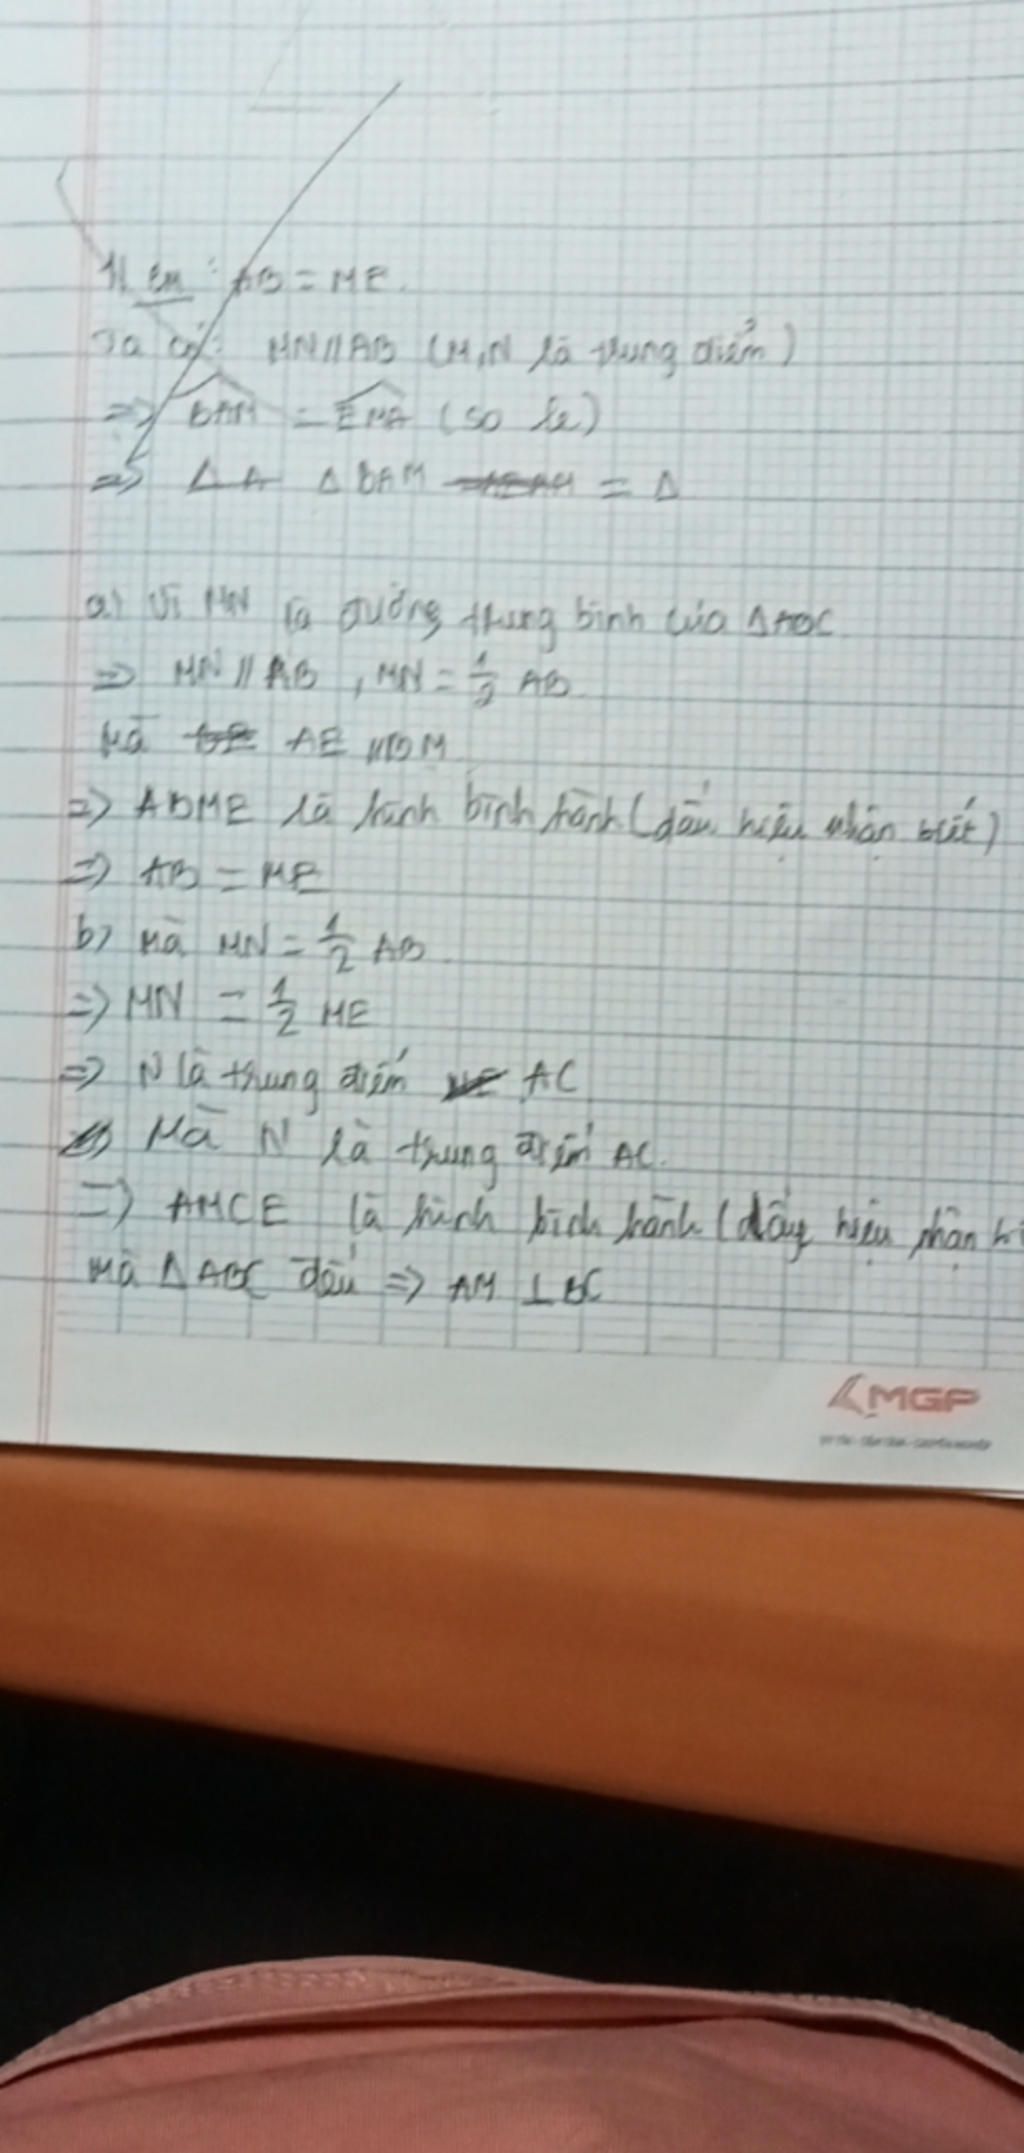 AB = ME.
Ta có: MN // AB (M,N là trung điểm)
=> BAM = EMA (so le)
=> Δ BAM = Δ
a) Vì MN là đường trung bình của ΔABC
=> MN // AB, MN = 1/2 AB.
Mà AE // BM
=> ABME là hình bình hành (dấu hiệu nhận biết)
=> AB = ME
b) Mà MN = 1/2 AB.
=> MN = 1/2 ME
=> N là trung điểm AC
Mà N là trung điểm AC.
=> AMCE là hình bình hành (dấu hiệu nhận
Mà ΔABC đều => AM ⊥ BC
MGP